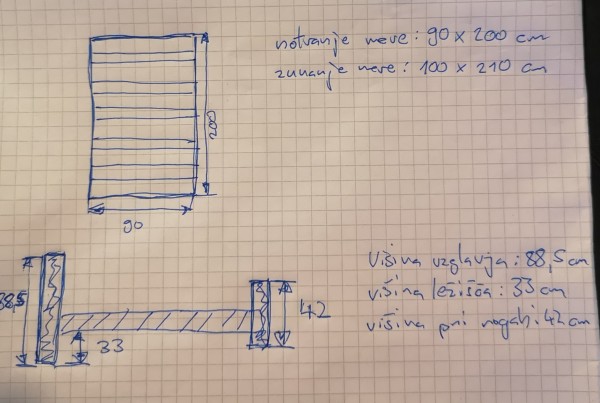 notranje mere: 90 x 200 cm
zunanje mere: 100 x 210 cm
200
90
višina vzglavja: 88,5 cm
višina ležišča: 33 cm
višina pri nogah: 42 cm
8,5
42
33